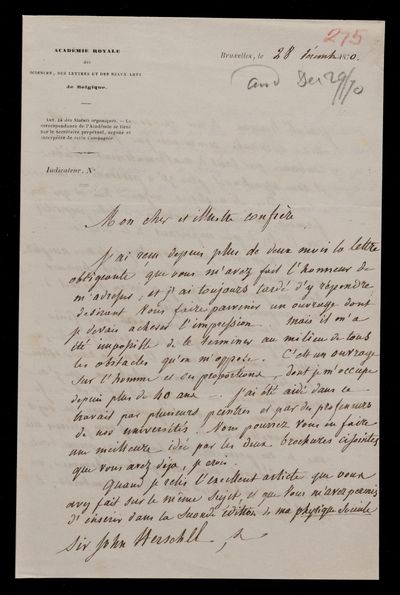 275
ACADÉMIE ROYALE
des
SCIENCES, DES LETTRES ET DES BEAUX-ARTS
de Belgique.
Bruxelles, le 28 décemb 1870.
and Dec 29/70
ART. 14 des Statuts organiques. — La
correspondance de l'Académie se tient
par le Secrétaire perpétuel, organe et
interprète de cette Compagnie.
Indicateur, N°
Mon cher et illustre confrère
J'ai reçu depuis plus de deux mois la lettre
obligeante que vous m'avez fait l'honneur de
m'adresser, et j'ai toujours tardé d'y répondre
désirant vous faire parvenir un ouvrage dont
je devais achever l'impression. Mais il m'a
été impossible de le terminer au milieu de tous
les obstacles qu'on m'oppose. C'est un ouvrage
sur l'homme et ses proportions, dont je m'occupe
depuis plus de 40 ans. J'ai été aidé dans ce
travail par plusieurs peintres et par des professeurs
de nos universités. Vous pourrez vous en faire
une meilleure idée par les deux brochures ci jointes
que vous avez déjà, je crois.
Quand je relis l'excellent article que vous
avez fait sur le même sujet, et que vous m'avez permis
d'insérer dans la seconde édition de ma physique sociale
Sir John Herschell.